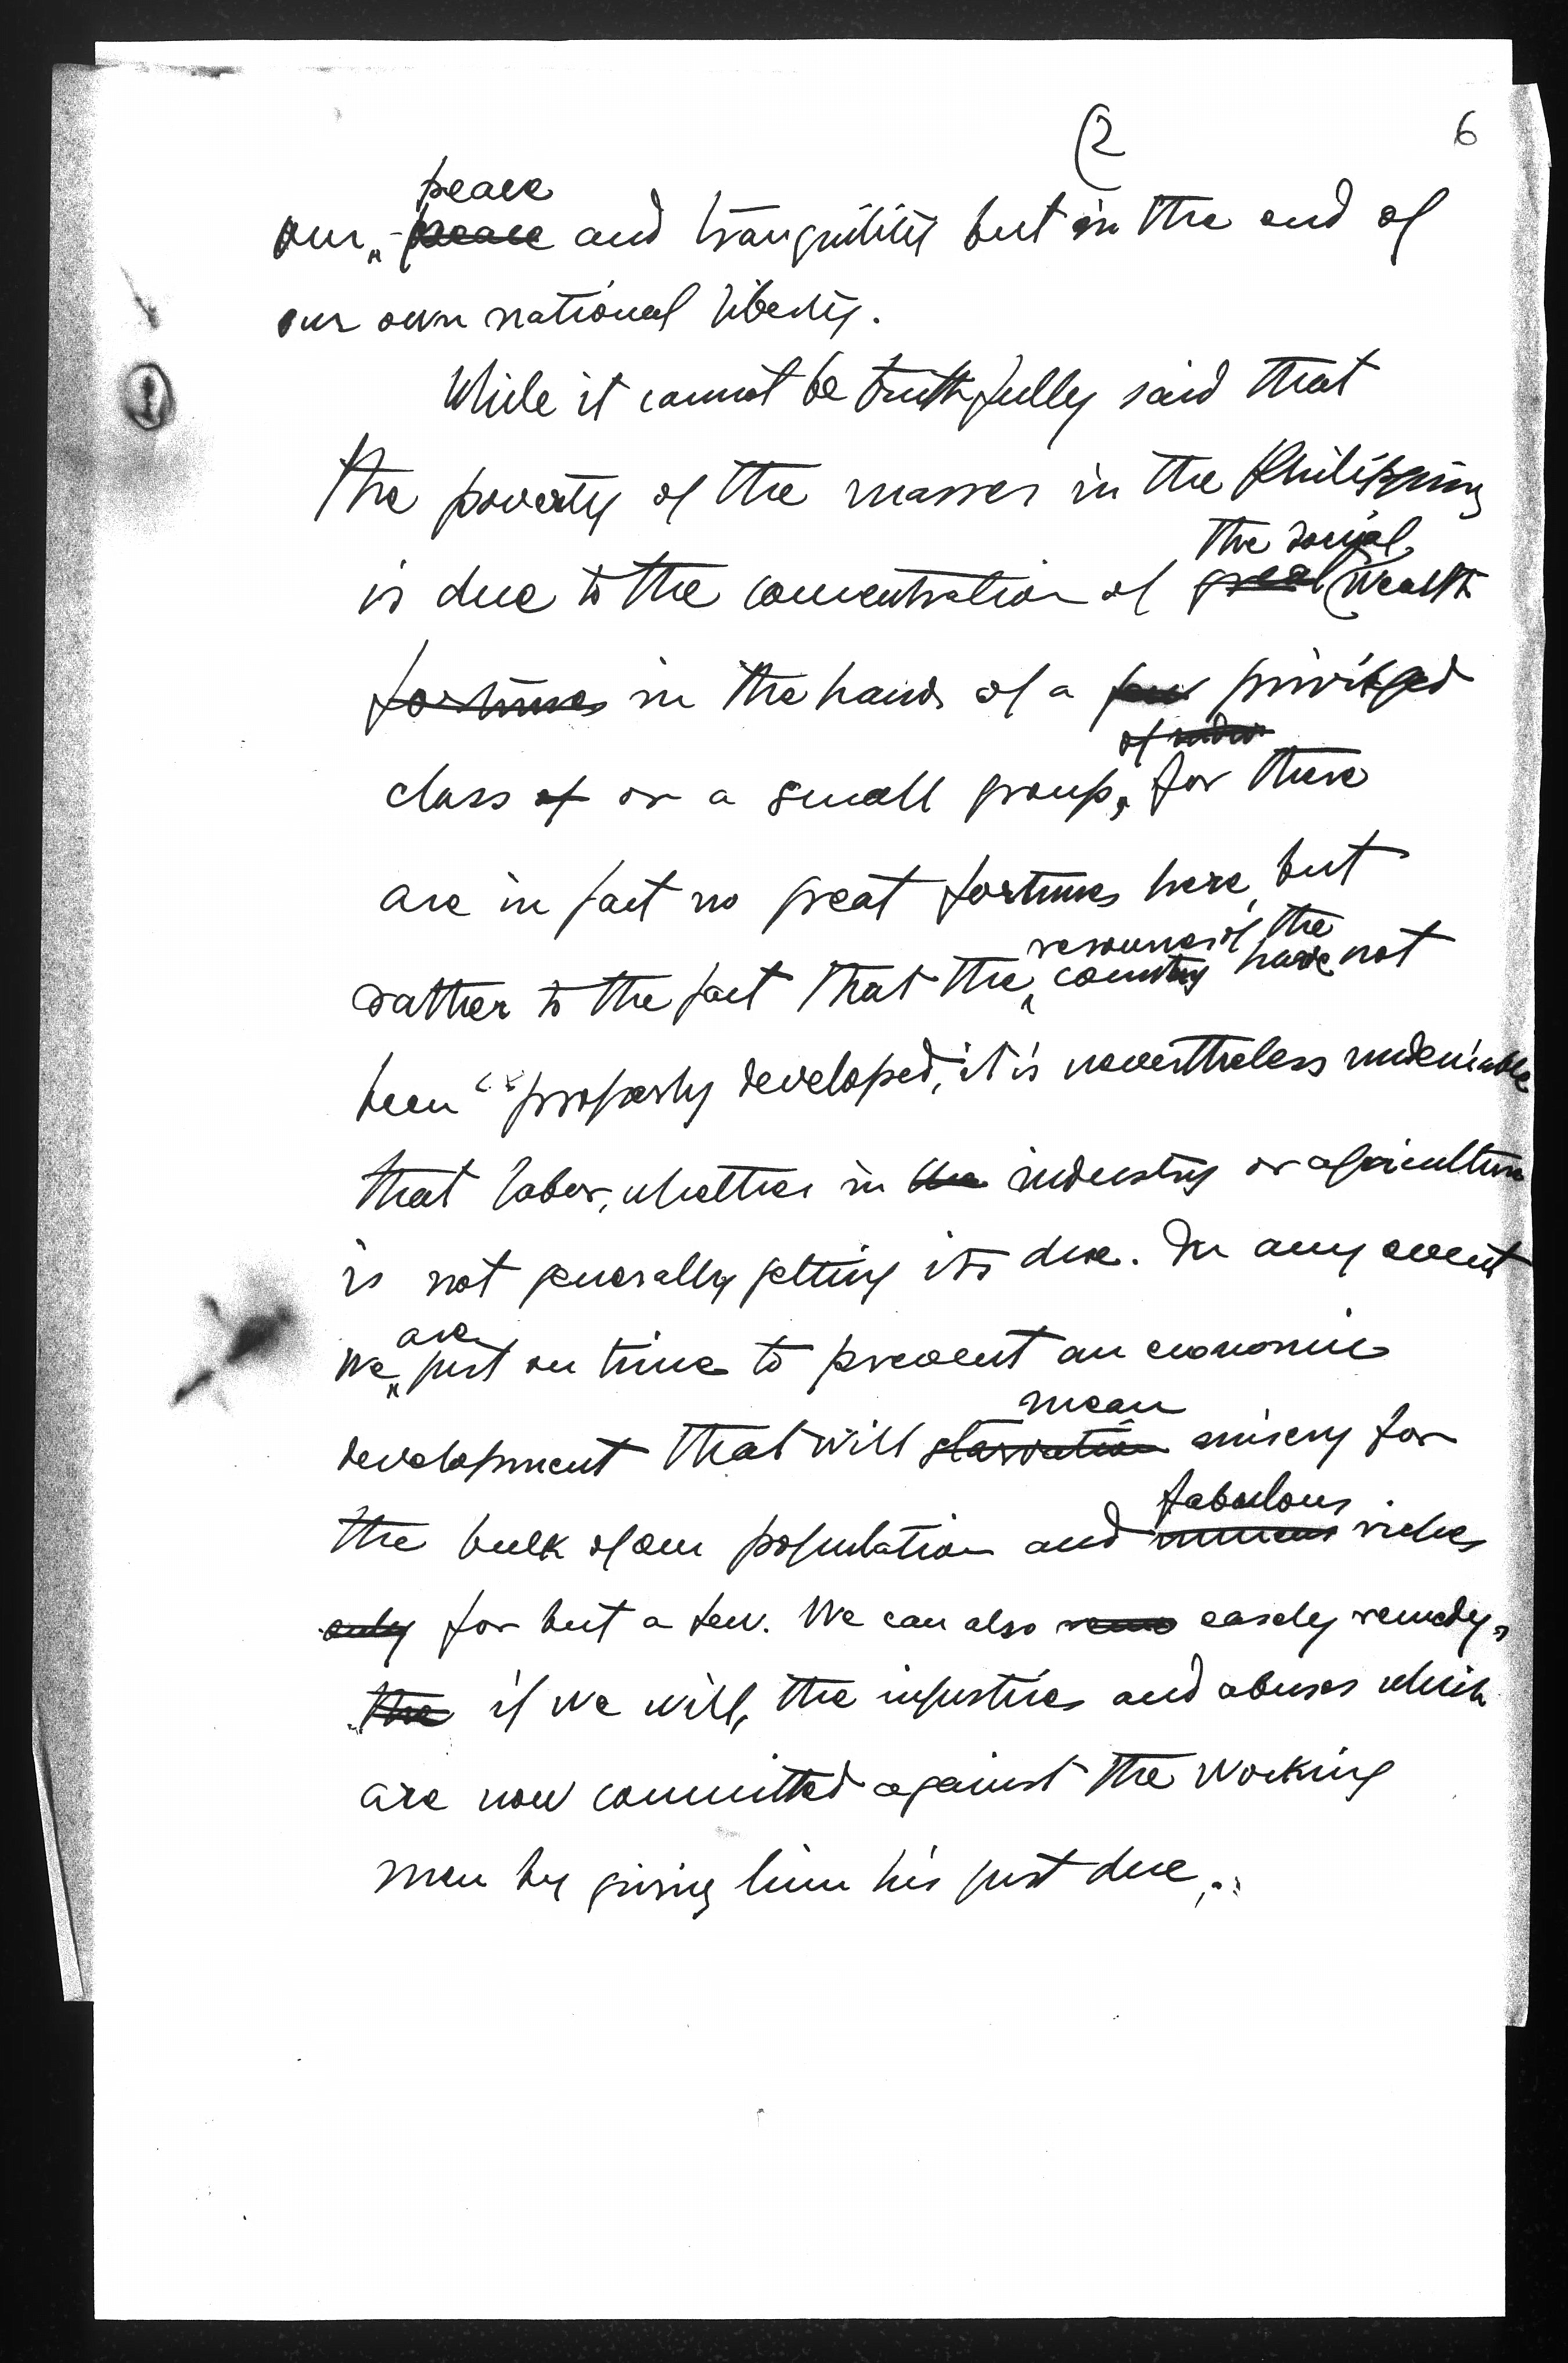 (2
6
peace
our peace and tranquility but in the end of
our own national liberty.
While it cannot be truthfully said that
the poverty of the masses in the Philippines
the social
is due to the concentration of great wealth
fortunes in the hands of a few privileged
of
class of or a small group, for there
are in fact no great fortunes here, but
resources of the
rather to the fact that the country have not
been properly developed, it is nevertheless undeniable
that labor, whether in the industry or agriculture
is not generally getting its due. In any event
are
we just on time to prevent an economic
mean
development that will starvation misery for
fabulous
the bulk of our population and riches
only for but a few. We can also easely remedy,
the if we will, the injustices and abuses which
are now committed against the working
man by giving him his just due.